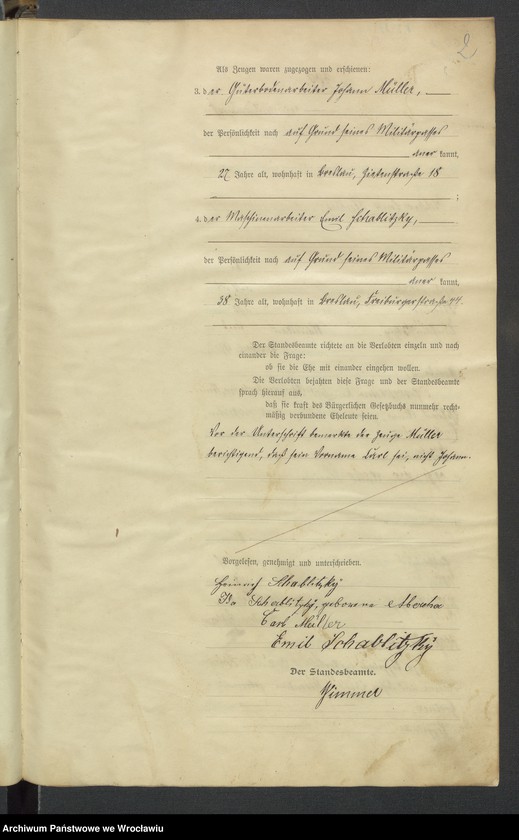 2
Als Zeugen waren zugezogen und erschienen:
3. der Güterbodenarbeiter Johann Müller,
der Persönlichkeit nach auf Grund seines Militärpasses
aner kannt,
27 Jahre alt, wohnhaft in Breslau, 18
4. der Maschinenarbeiter Emil Schablitzky,
der Persönlichkeit nach auf Grund seines Militärpasses
aner kannt,
38 Jahre alt, wohnhaft in Breslau, Freiburgerstraße 44.
Der Standesbeamte richtete an die Verlobten einzeln und nach
einander die Frage:
ob sie die Ehe mit einander eingehen wollen.
Die Verlobten bejahten diese Frage und der Standesbeamte
sprach hierauf aus,
daß sie kraft des Bürgerlichen Gesetzbuchs nunmehr recht-
mäßig verbundene Eheleute seien.
Vor der Unterschrift bemerkte der Zeuge Müller
berichtigend, daß sein Vorname Carl sei, nicht Johann.
Vorgelesen, genehmigt und unterschrieben.
Heinrich Schablitzky
Ida Schablitzky, geborene
Carl Müller
Emil Schablitzky
Der Standesbeamte.
Wimmer
Archiwum Państwowe we Wrocławiu